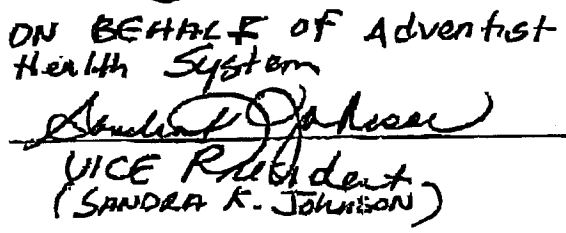 ON BEHALF OF Adventist
Health System
Sandra K Johnson
VICE President
(SANDRA K. JOHNSON)